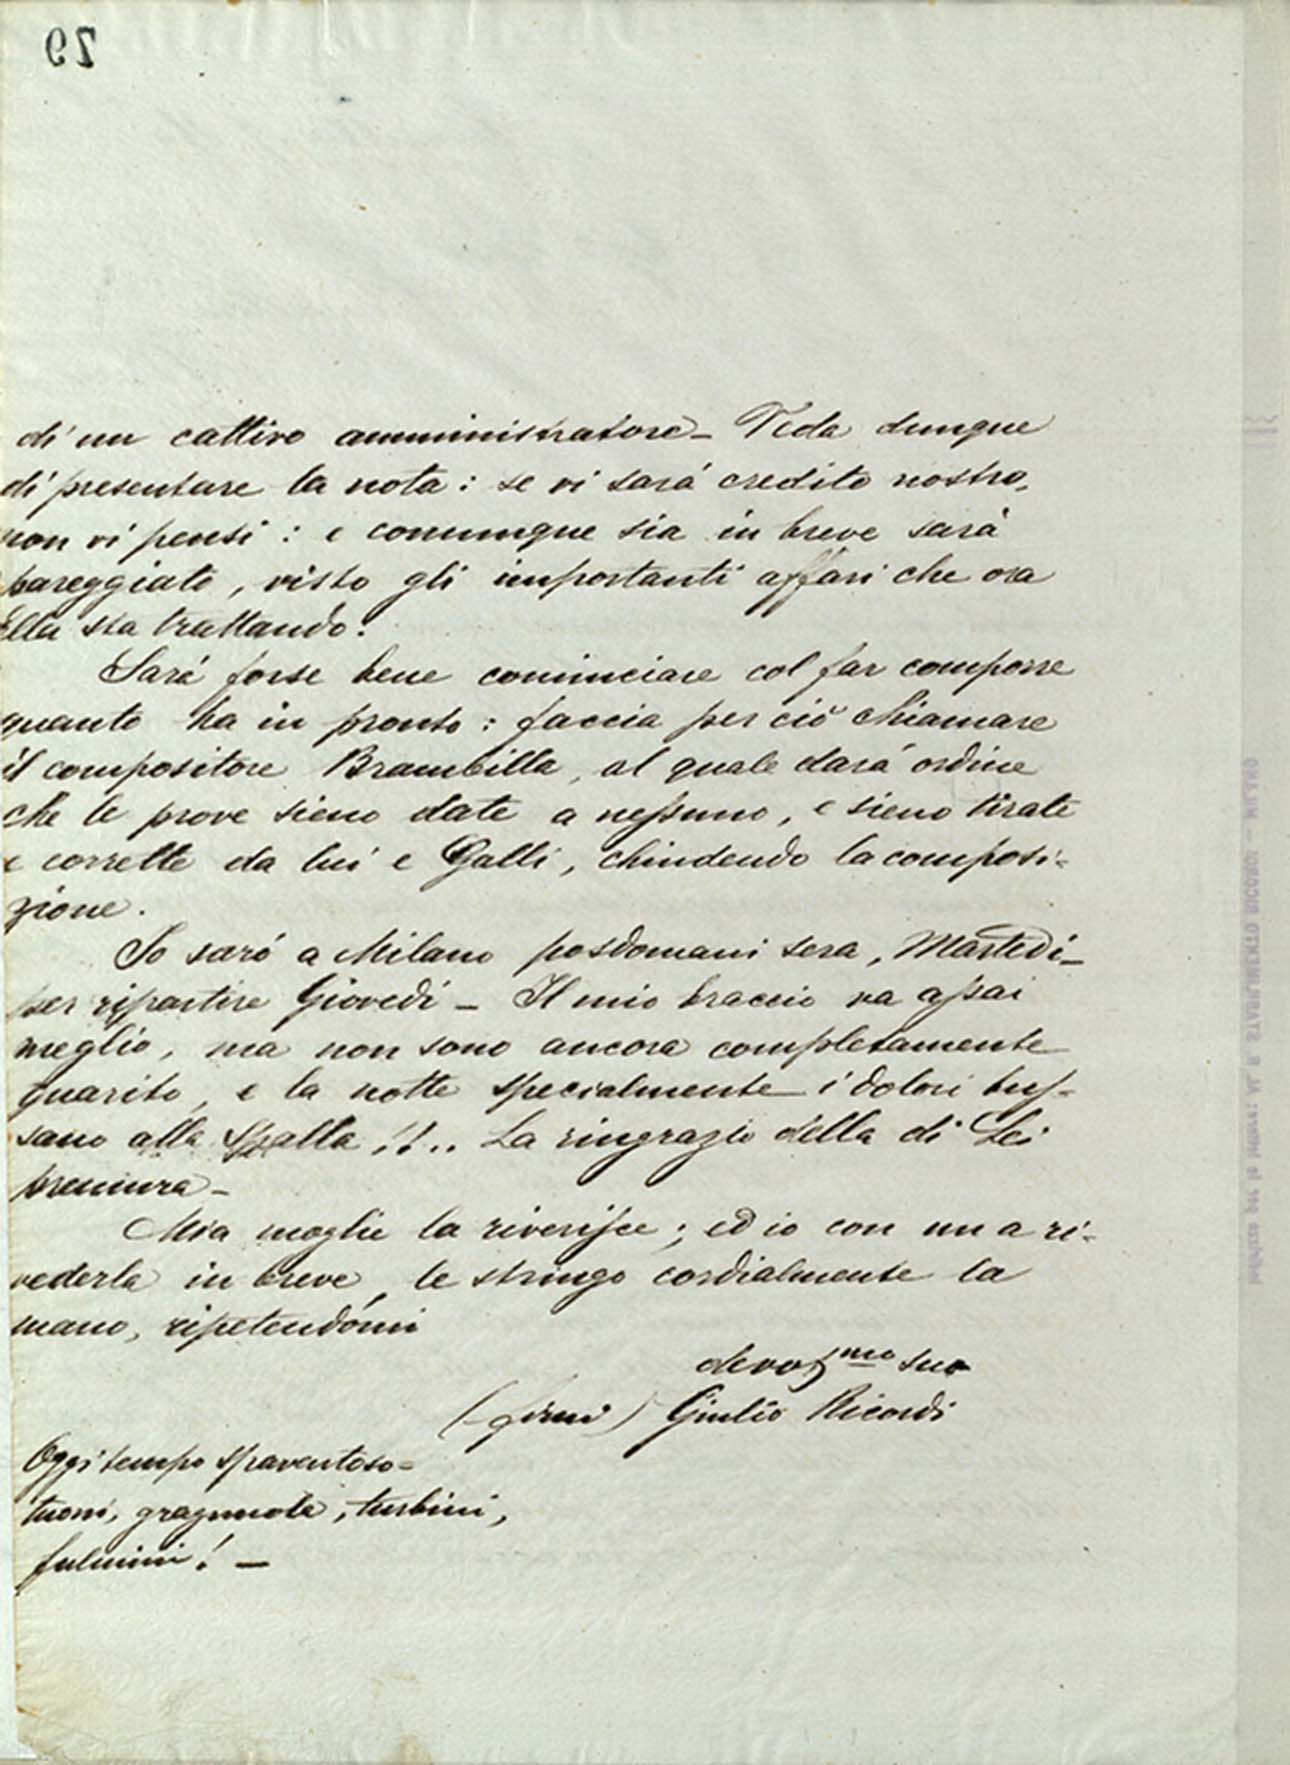 79
di un cattivo amministratore – Veda dunque
di presentare la nota: se vi sarà credito nostro,
non vi pensi: e comunque sia in breve sarà
pareggiato, visto gli importanti affari che ora
Ella sta trattando.
Sarà forse bene cominciare col far comporre
quanto ha in pronto: faccia per ciò chiamare
il compositore Brambilla, al quale darà ordine
che le prove sieno date a nessuno, e sieno tirate
e corrette da lui e Galli, chiudendo la composi-
zione.
Io sarò a Milano posdomani sera, Martedì –
per ripartire Giovedì – Il mio braccio va assai
meglio, ma non sono ancora completamente
guarito, e la notte specialmente i dolori bus-
sano alla spalla !!.. La ringrazio della di Lei
premura –
Mia moglie la riverisce; ed io con un a ri-
vederla in breve, le stringo cordialmente la
mano, ripetendomi
devotmo suo
(firm) Giulio Ricordi
Oggi tempo spaventoso =
tuoni, gragnuola, turbini,
fulmini! –
Indirizzo per le lettere: AL R. STABILIMENTO RICORDI — MILANO